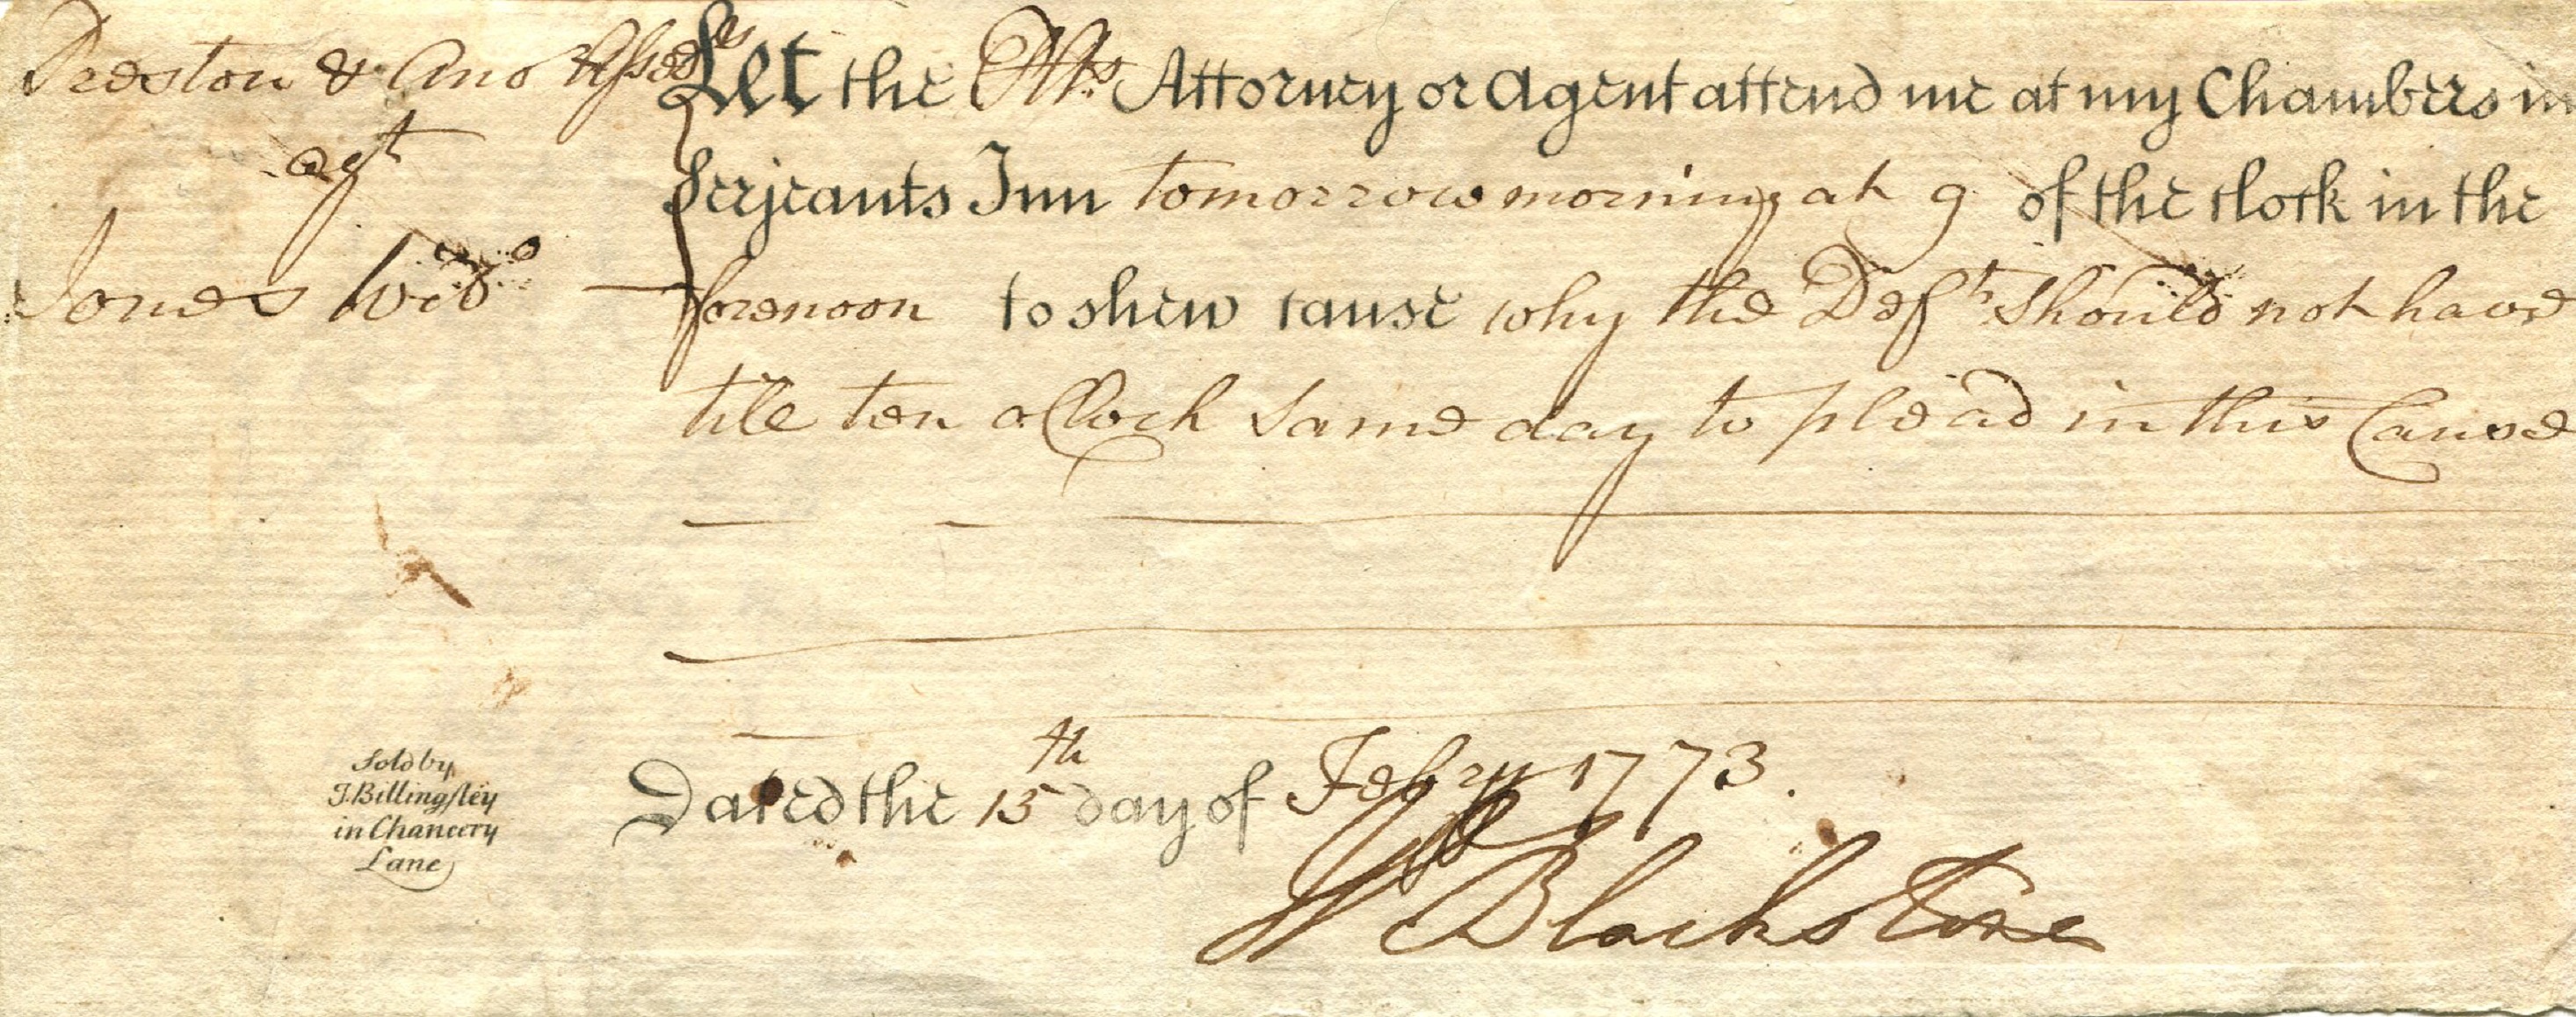 Preston & Ano Assees
agt
Jones Wido
Let the Plts Attorney or Agent attend me at my Chambers in
Serjeants Inn tomorrow morning at 9 of the Clock in the
forenoon to shew cause why the Deft should not have
till ten oClock same day to plead in this Cause
Dated the 15th day of Febry 1773.
W Blackstone
Sold by
J. Billingsley
in Chancery
Lane